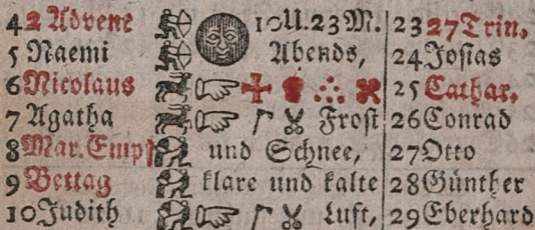 4 2 Advent 10U.23M. 23 27 Trin.
5 Naemi Abends, 24 Josias
6 Nicolaus 25 Cathar.
7 Agatha Frost 26 Conrad
8 Mar. Empf und Schnee, 27 Otto
9 Bettag klare und kalte 28 Günther
10 Judith Luft, 29 Eberhard